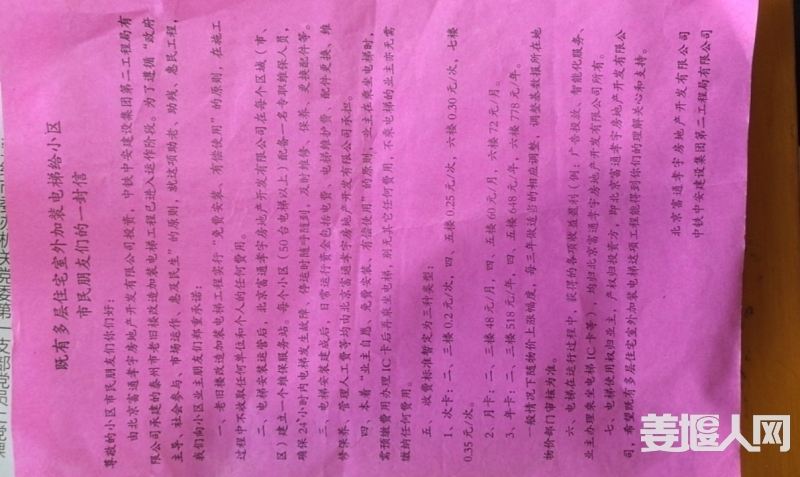 既有多层住宅室外加装电梯给小区
市民朋友们的一封信
尊敬的小区市民朋友们你们好：
由北京富通孝宇房地产开发有限公司投资，中铁中安建设集团第二工程局有
限公司承建的泰州市老旧楼改造加装电梯工程已进入运作阶段。为了遵循“政府
主导，社会参与，市场运作，惠及民生”的原则，就这项助老、助残、惠民工程，
我们向小区业主朋友们郑重承诺：
一、老旧楼改造加装电梯工程实行“免费安装、有偿使用”的原则，在施工
过程中不收取任何单位和个人的任何费用。
二、电梯安装运营后，北京富通孝宇房地产开发有限公司在每个区域（市、
区）建立一个维保服务站，每个小区（50台电梯以上）配备一名专职维保人员，
确保24小时内电梯发生故障、停运时随呼随到，及时维修、保养、更换配件等。
三、电梯安装建成后，日常运行资金包括电费、电梯维护费、配件更换、维
修保养、管理人工费等均由北京富通孝宇房地产开发有限公司承担。
四、本着“业主自愿、免费安装、有偿使用”的原则，业主在乘坐电梯时，
需预缴费用办理IC卡后再乘坐电梯，别无其它任何费用，不乘电梯的业主亦无需
缴纳任何费用。
五、收费标准暂定为三种类型：
1、次卡：二、三楼0.2元/次，四、五楼0.25元/次，六楼0.30元/次，七楼
0.35元/次。
2、月卡：二、三楼48元/月，四、五楼60元/月，六楼72元/月。
3、年卡：二、三楼518元/年，四、五楼648元/年，六楼778元/年。
一般情况下随物价上涨幅度，每三年做适当的相应调整，调整基数报所在地
物价部门审核为准。
六、电梯在运行过程中，获得的各项收益盈利（例：广告投放、智能化服务、
业主办理乘坐电梯IC卡等），均归北京富通孝宇房地产开发有限公司所有。
七、电梯使用权归业主，产权归投资方，即北京富通孝宇房地产开发有限公
司，希望既有多层住宅室外加装电梯这项工程能得到你们的理解关心和支持。
北京富通孝宇房地产开发有限公司
中铁中安建设集团第二工程局有限公司
姜堰人网